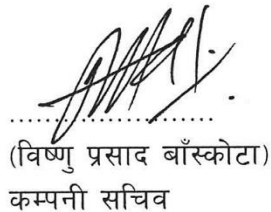 (विष्णु प्रसाद बाँस्कोटा)
कम्पनी सचिव